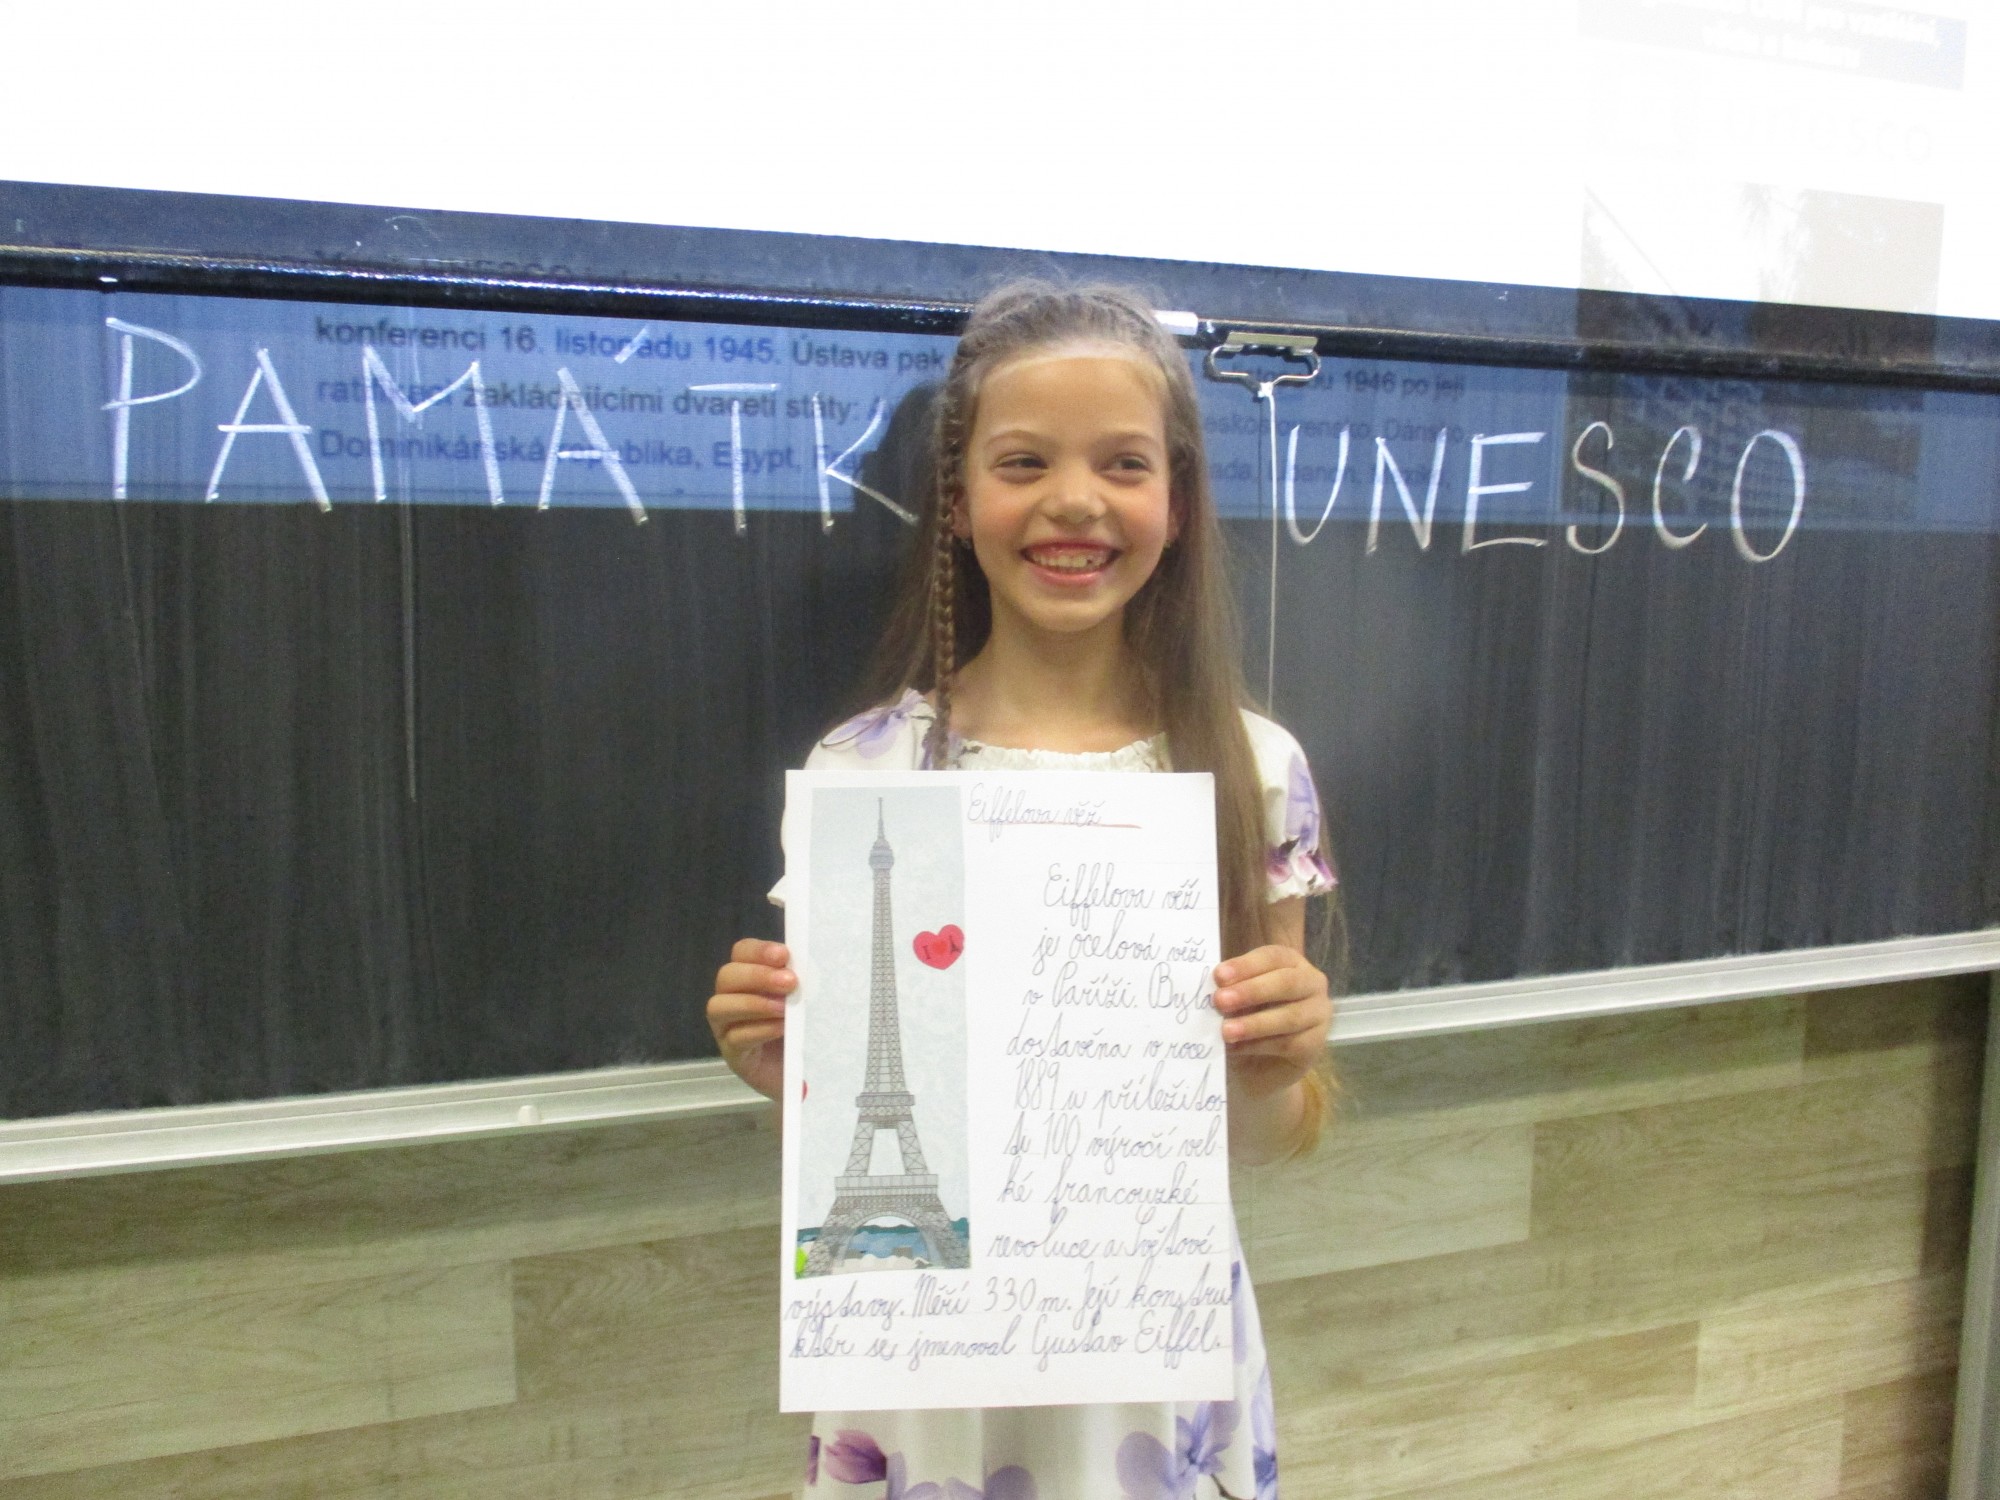 unesco
konferenci 16. listopadu 1945. Ústava pak
1946 po její
ratifikaci zakládajícími dvaceti státy:
Dominikánská republika, Egypt,
PAMÁTK UNESCO
Eiffelova věž
Eiffelova věž
je ocelová věž
v Paříži. Byla
dostavěna v roce
1889 u příležitos
ti 100 výročí vel-
ké francouzké
revoluce a Světové
výstavy. Měří 330 m. Její konstru
ktér se jmenoval Gustav Eiffel.